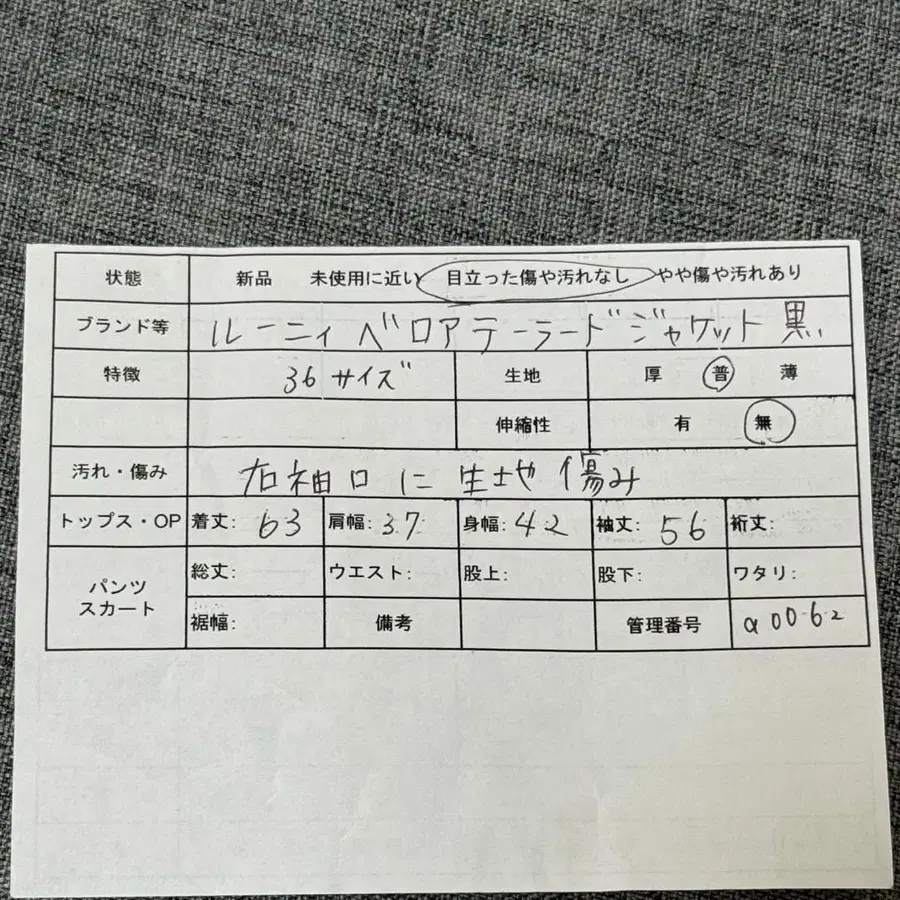 状態 新品 未使用に近い 目立った傷や汚れなし やや傷や汚れあり
ブランド等 ルーニィ ベロアテーラードジャケット 黒
特徴 36サイズ 生地 厚 普 薄
伸縮性 有 無
汚れ・傷み 右袖口に生地傷み
トップス・OP 着丈: 63 肩幅: 37 身幅: 42 袖丈: 56 裄丈:
パンツ スカート 総丈: ウエスト: 股上: 股下: ワタリ:
裾幅: 備考 管理番号 a0062